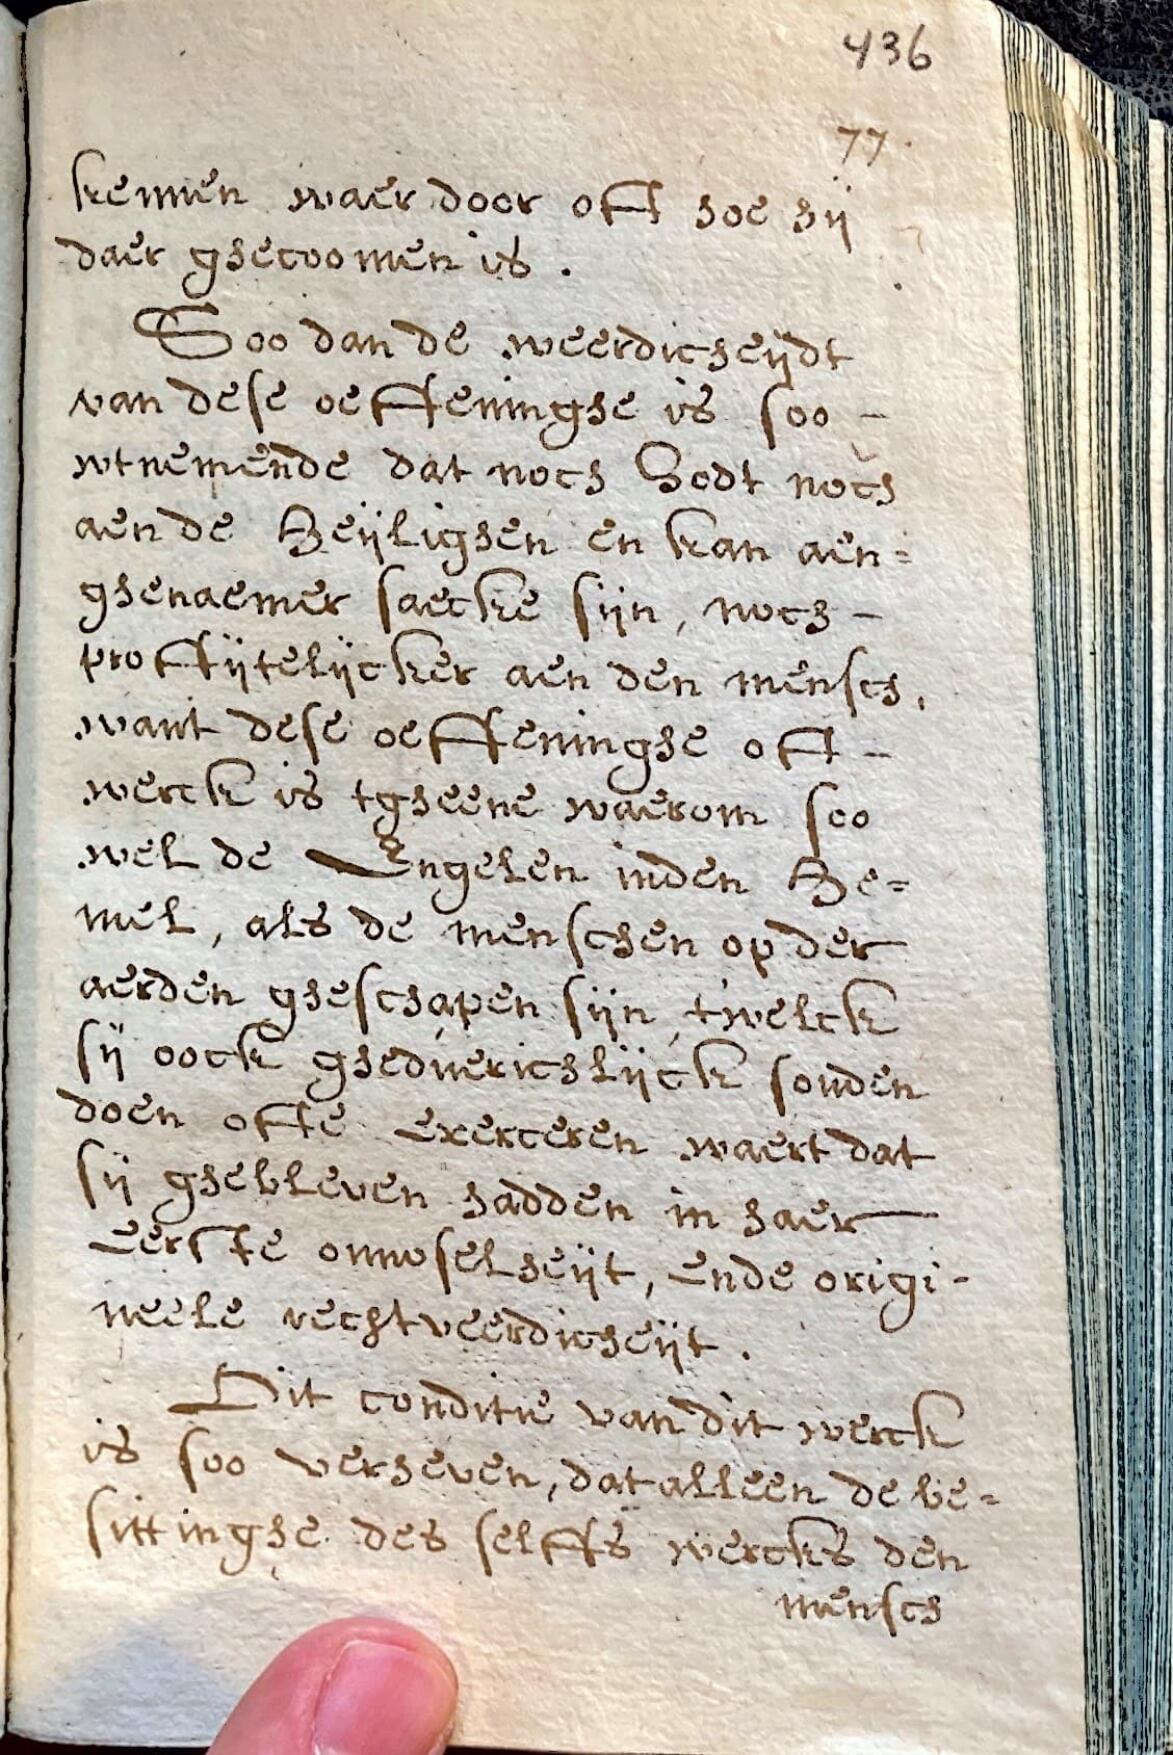 436
77.
kennen waer door oft hoe hij
daer ghecoomen is.
Soo dan de weerdicheijdt
van dese oeffeninghe is soo -
wtnemende dat noch Godt noch
aen de Heijlighen en kan aen=
ghenaemer saecke sijn, noch -
proffijtelijcker aen den mensch,
want dese oeffeninghe oft -
werck is tgheene waerom soo
wel de Engelen inden He=
mel, als de menschen op der
aerden gheschapen sijn, twelck
sij oock gheduerichlijck souden
doen ofte exerceren waert dat
sij ghebleven hadden in haer
eerste onnoselheijt, ende origi-
neele rechtveerdicheijt.
Dit conditie van dit werck
is soo verheven, dat alleen de be=
sittinghe des selffs wercks den
mensch